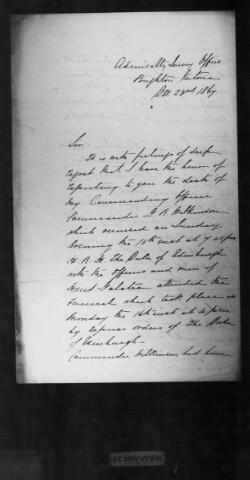 Admiralty Survey Office
Brighton, Victoria
Dec 23rd 1867
Sir
It is with feelings of deep
regret that I have the honor of
reporting to you the death of
My Commanding Officer
Commander Wilkinson
which occurred on Sunday
Evening the inst at 7 o'clock
H.R.H. The Duke of Edinburgh
with the Officers and men of
Galatea attended the
Funeral which took place on
Monday the inst at
by express orders of The Duke
of Edinburgh—
Commander Wilkinson had been
HIRAKAWA SS